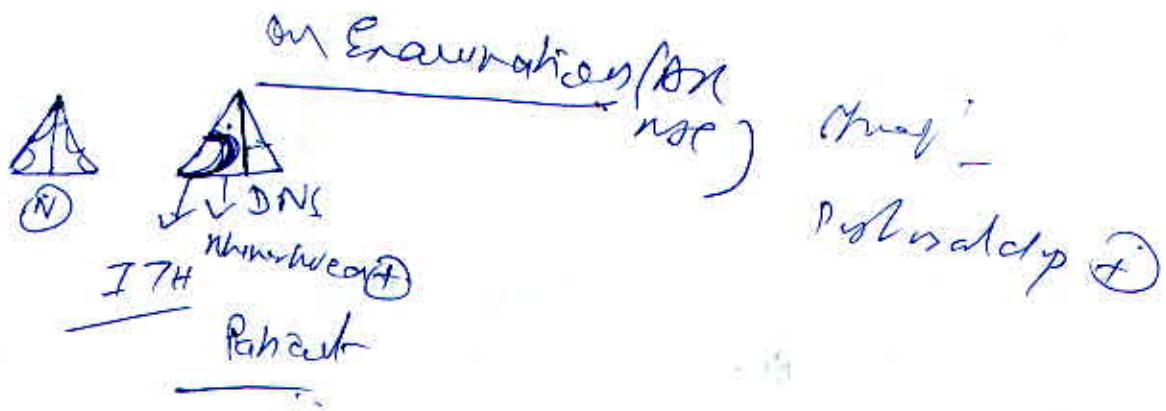 on Examination (Ant
nose)
N
DNS
Rhinorrhoea +
ITH
Patient
Post nasal drip +